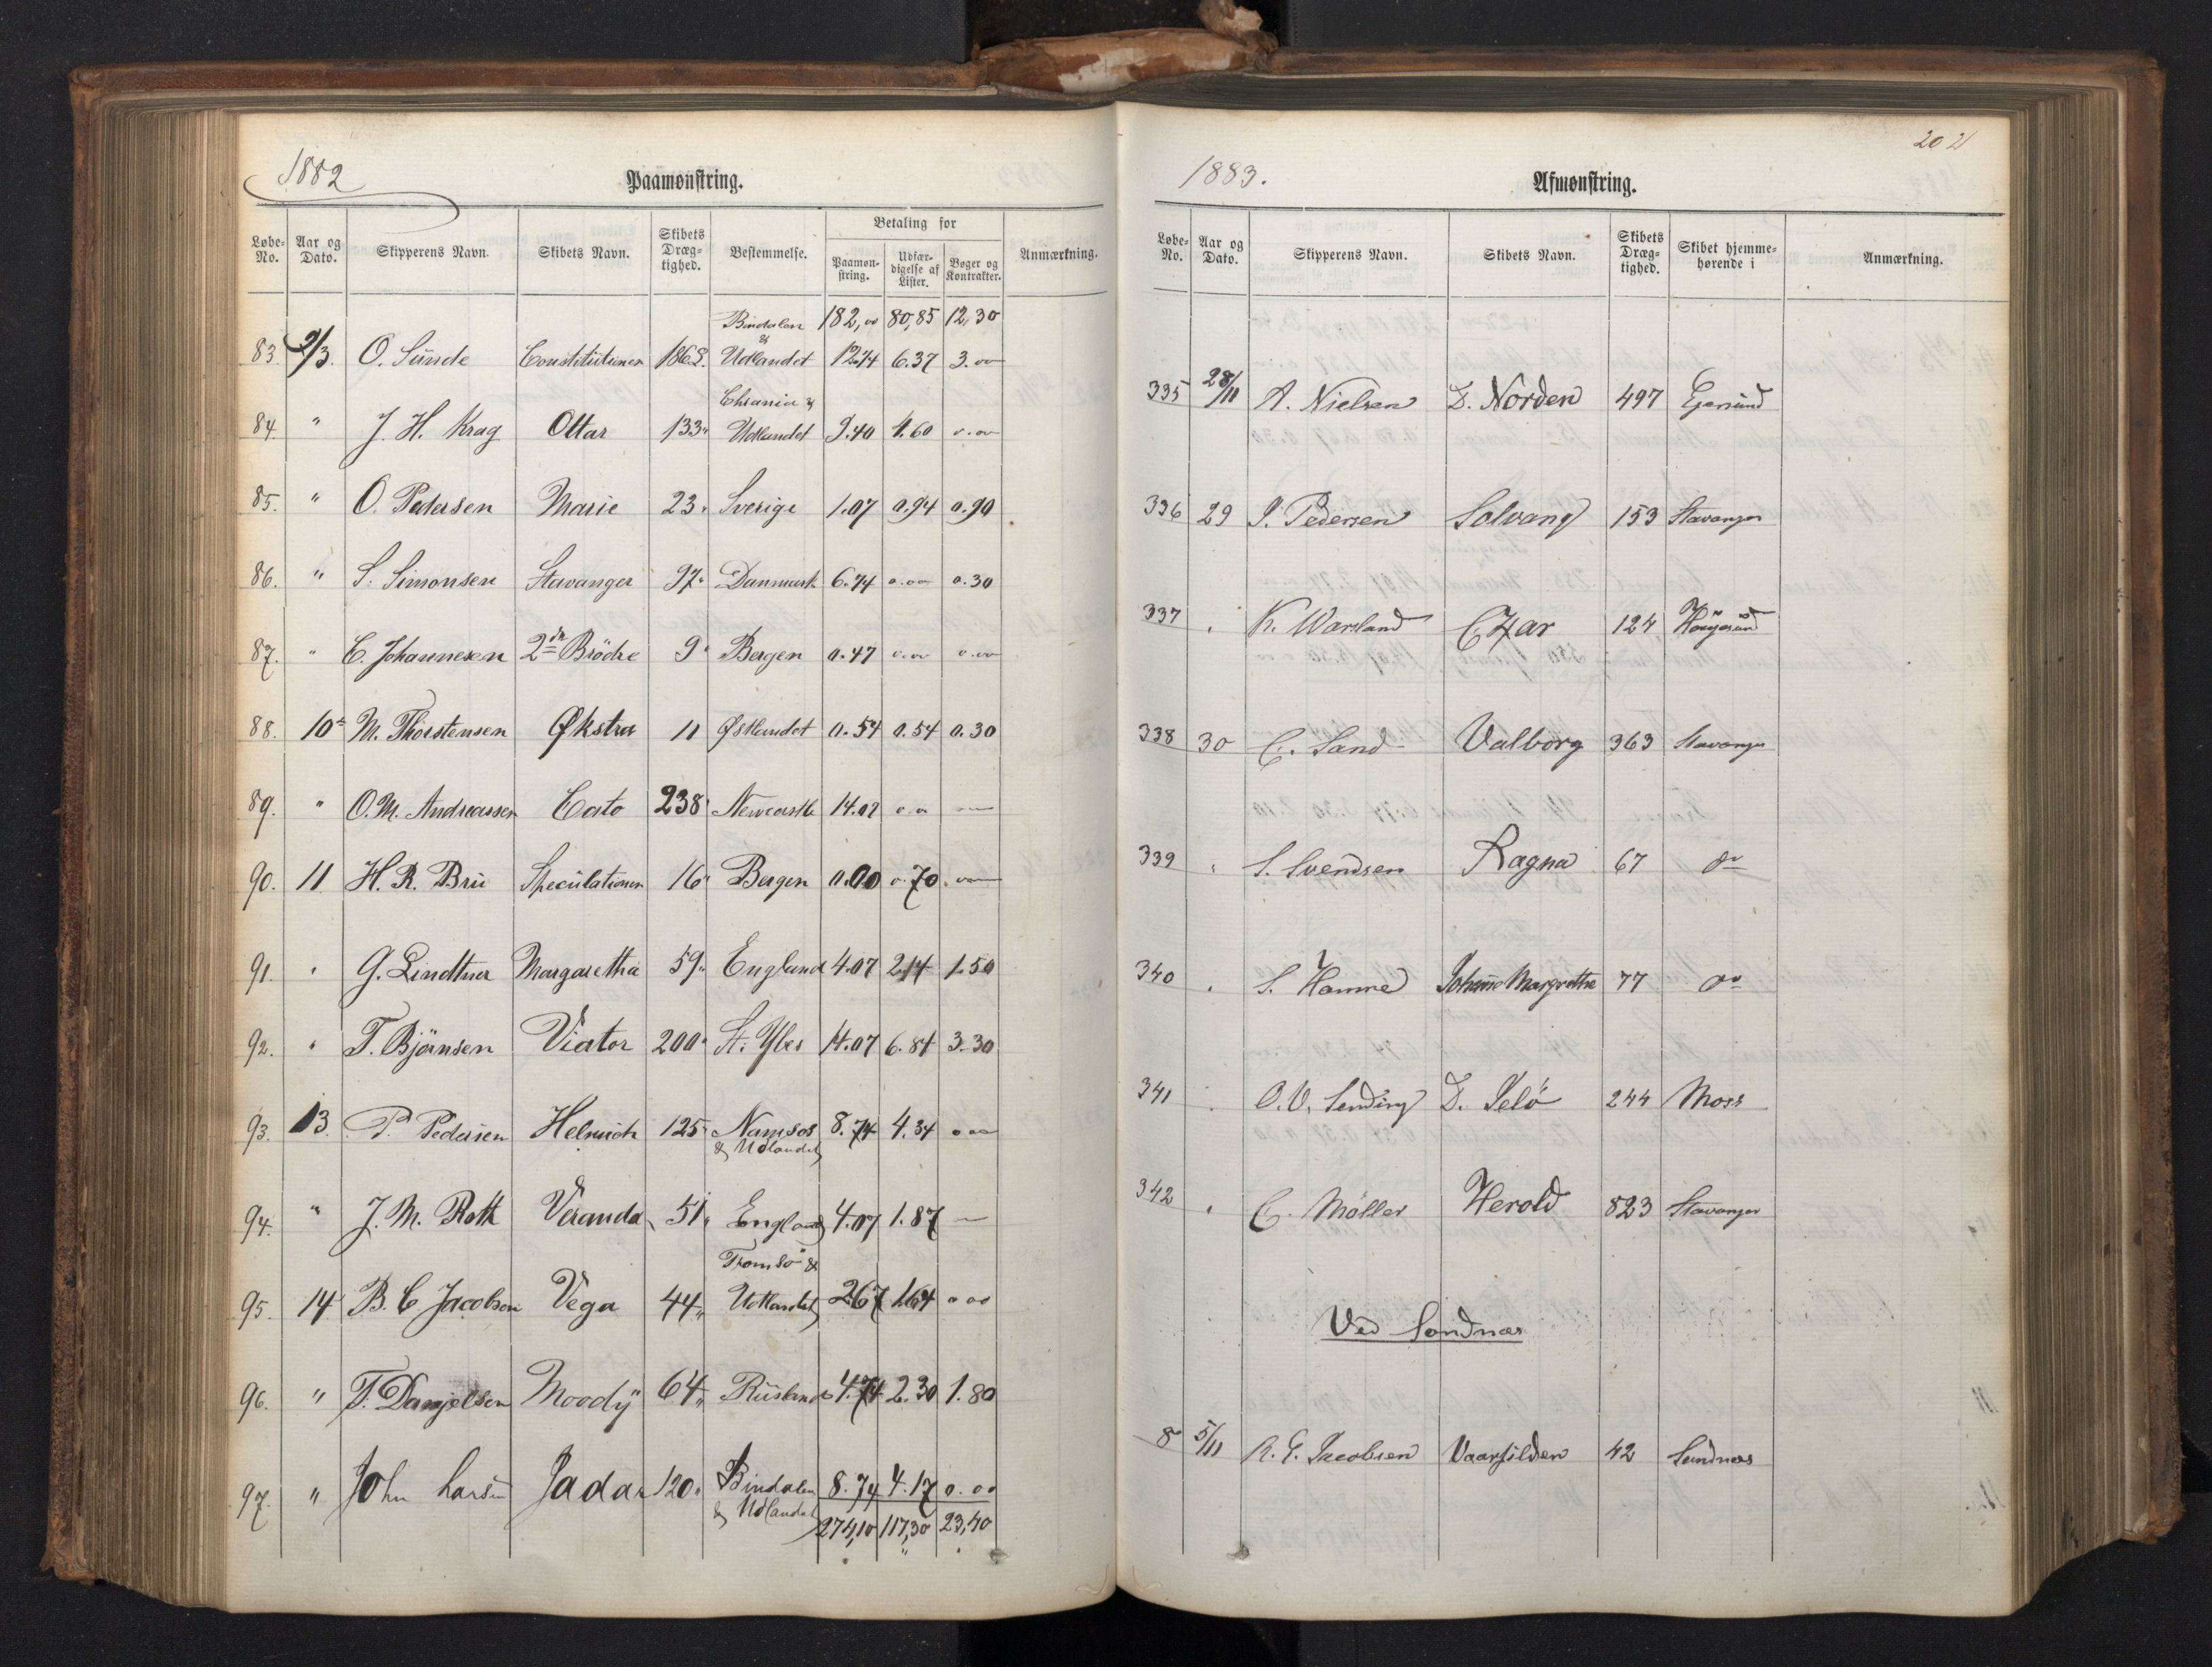 1882
Paamønstring.
Løbe-No. Aar og Dato. Skipperens Navn. Skibets Navn. Skibets Dræg-tighed. Bestemmelse. Betaling for Paamøn-string. Udfær-digelse af Lister. Bøger og Kontrakter. Anmærkning.
Bindalen 182,00 80,85 12,30
83. 9/3. O. Sünde Constitütionen 186.5. & Udlandet 12.74 6.37 3.00
Chrania &
84. " J. H. Krag Ottar 133" Udlandet 9.40 4.60 0.00
85. " O. Pedersen Marie 23" Sverige 1.07 0.94 0.90
86. " S. Simonsen Stavanger 97" Danmark 6.74 0.00 0.30
87. " C. Johannesen 2de Brödre 9" Bergen 0.47 0.00 0.00
88. 10de M. Thorstensen Økstra 11 Østlandet 0.54 0.54 0.30
89. " O. M. Andreassen Cato 238" Newcastle 14.07
90. 11 H. R. Brü Specülationen 16" Bergen 0.00 0.70
91. " G. Lindtner Margaretha 59" England 4.07 2.14 1.50
92. " T. Bjørnsen Viator 200" St. Ybes 14.07 6.84 3.30
93. 13 P. Pedersen Helmich 125" Namsos 8.74 4.34 0 00
& Udlandet
94. " J. M. Roth Veranda 51" England 4.07 1.87 —
Tromsö &
95. 14 B. C Jacobsen Vega 44" Udlandet 2.67 1.64 0 00
96. " T. Danjelsen Moody 64" Rüsland 4.74 2.30 1.80
97. " John Larsen Jadar 120" Bindalen 8.74 4.17 0.00
& Udlandet 274,10 117,30 23,40
202
1883.
Afmønstring.
Løbe-No. Aar og Dato. Skipperens Navn. Skibets Navn. Skibets Dræg-tighed. Skibet hjemme-hørende i Anmærkning.
335 28/11 A. Nielsen D. Norden 497 Egersund
336 29 P. Pedersen Solvang 153 Stavanger
337 " K. Warsland Czar 124 Haugesund
338 30 C. Sand Valborg 363 Stavanger
339 " S. Svendsen Ragna 67 do
340 " S. Hamre Johanne Margrethe 77 do
341 " O. V. Sending D. Selö 244 Moss
342 " C. Möller Herold 823 Stavanger
Ved Sandnæs
8 5/11 R. E. Jacobsen Vaarsilden 42 Sandnæs